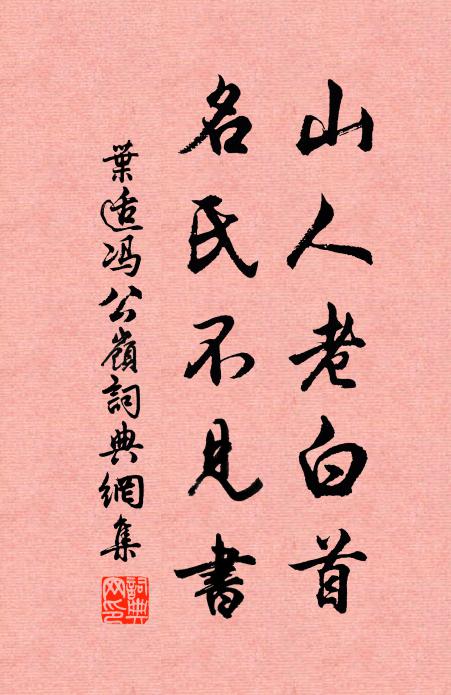 山人老白首
名氏不見書
葉適馮公嶺詞典網集
詞典網印